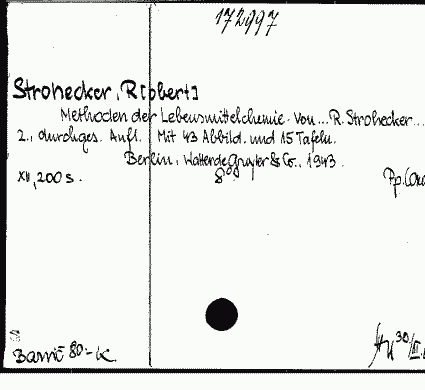 172997
Strohecker, R[obert]
Methoden der Lebensmittelchemie. Von ... R. Strohecker ...
2., durchges. Aufl. Mit 43 Abbild. und 15 Tafeln.
Berlin, Walter de Gruyter & Co., 1943.
XII, 200 s. 8°.
80.- K.